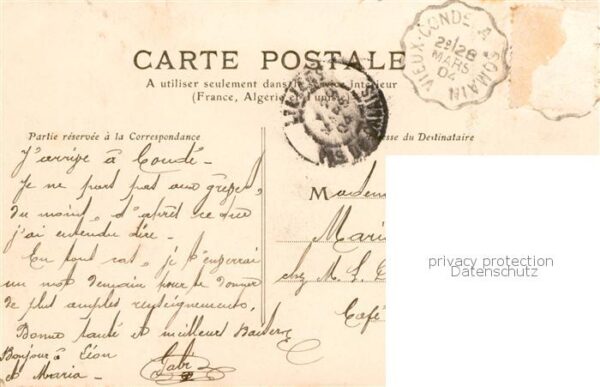 CARTE POSTALE
A utiliser seulement dans le service intérieur
(France, Algérie et Tunisie)
VIEUX-CONDE A SOMAIN
2E/28
MARS
04
Partie réservée à la Correspondance
Adresse du Destinataire
J'arrive à Condé -
Je ne part pas aux grèves,
du moins, d'après ce que
j'ai entendu dire -
En tout cas, je t'enverrai
un mot demain pour te donner
de plus amples renseignements,
Bonne santé et meilleur Baiser
Bonjour à Léon
et Maria -
Gabr
M
Madem
Mari
chez M. L.
Café
privacy protection
Datenschutz